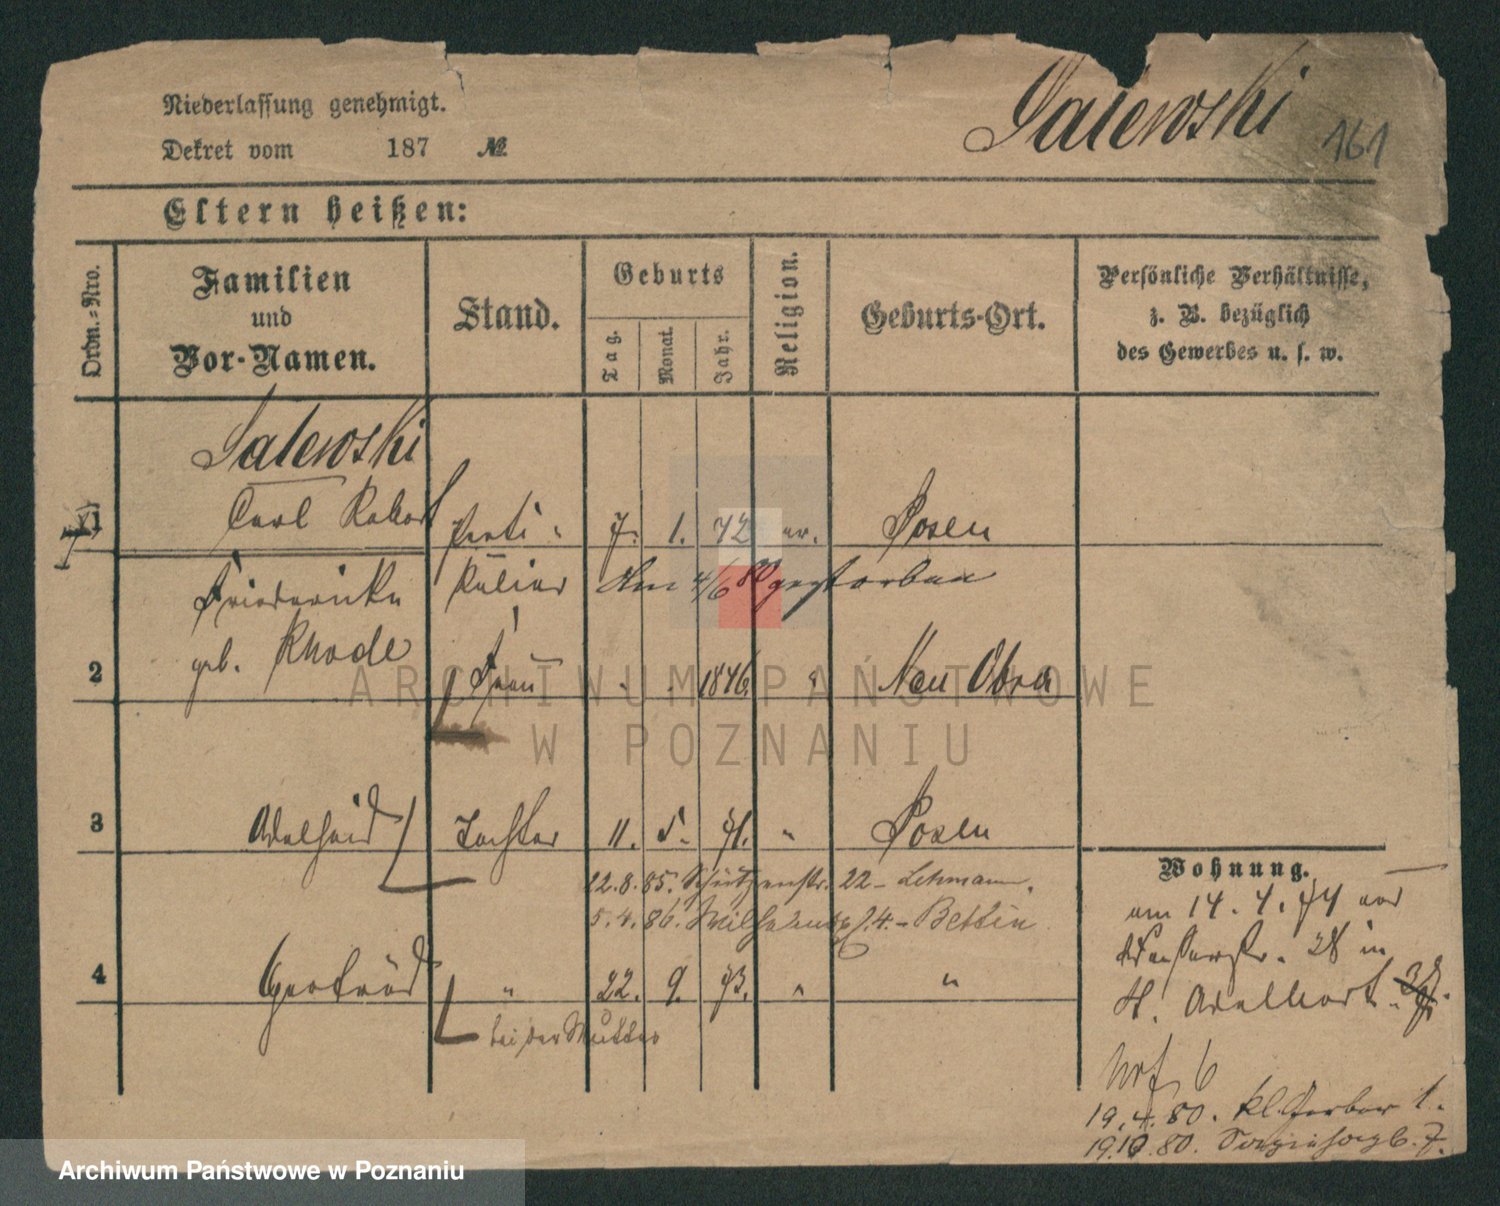 Niederlassung genehmigt.
Salewski 161
Dekret vom 187 №
Eltern heißen:
Ordn.-Nro.
Familien und Vor-Namen.
Stand.
Geburts
Tag. Monat. Jahr.
Religion.
Geburts-Ort.
Persönliche Verhältnisse, z. B. bezüglich des Gewerbes u. s. w.
Salewski
1 Carl Robert Parti- 7. 1. 42 ev. Posen
Friederike kulier Am 4/6 80 gestorben
2 geb. Rhode Frau 1846 " Neu Obra
3 Adelheid Tochter 11. 5. 71. " Posen
22.8.85. Schützenstr. 22 - Lehmann.
5.4.86. Wilhelmspl. 4. - Bettin
4 Gertrud " 22. 9. 73. " "
bei der Mutter
Wohnung.
am 14. 4. 74 nach
28 in
19.4.80. kl. Gerber 1.
19.10.80.
ARCHIWUM PAŃSTWOWE
W POZNANIU
Archiwum Państwowe w Poznaniu